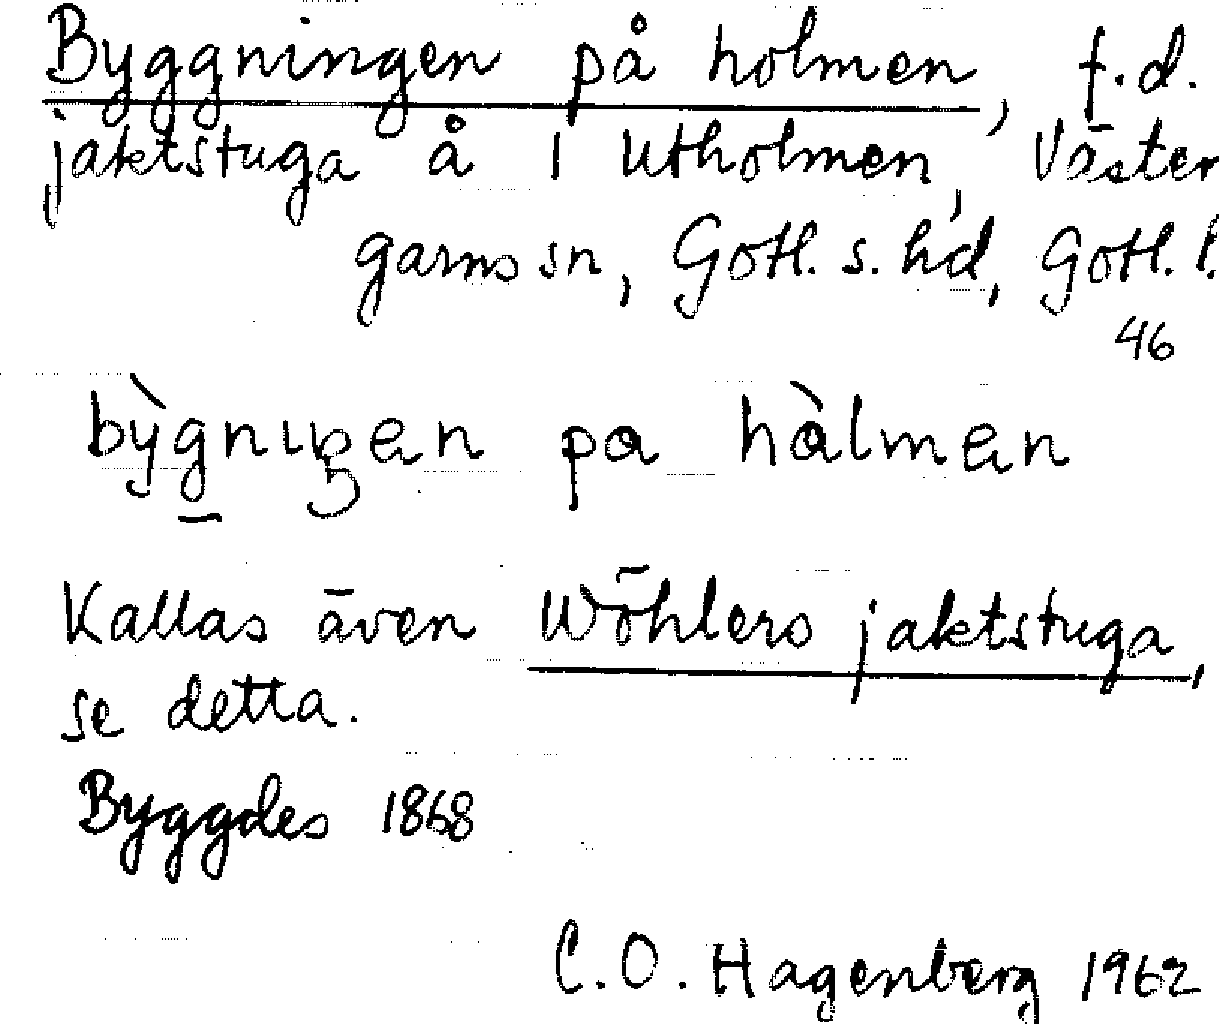 Byggningen på holmen, f.d.
jaktstuga å 1 Utholmen, Väster
garns sn, Gotl. s. hd, Gotl. l.
46
bỳg̱nıŋen pa hàlmen
Kallas även Wöhlers jaktstuga,
se detta.
Byggdes 1868
C.O. Hagenberg 1962